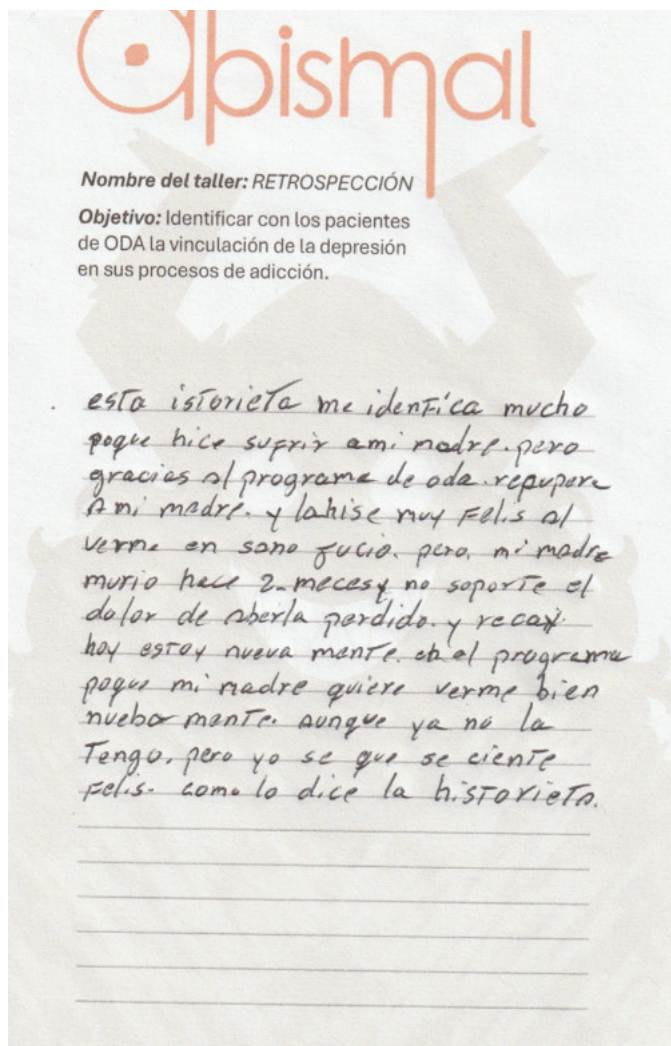 abismal
Nombre del taller: RETROSPECCIÓN
Objetivo: Identificar con los pacientes
de ODA la vinculación de la depresión
en sus procesos de adicción.
esta istorieta me identifica mucho
poque hice sufrir ami madre. pero
gracias al programa de oda. repupere
A mi madre. y lahise muy Felis al
verme en sano jucio. pero, mi madre
murio hace 2 meces y no soporte el
dolor de aberla perdido. y recai.
hoy estoy nueva mente. en el programa
poque mi madre quiere verme bien
nueba mente. aunque ya no la
Tengo. pero yo se que se ciente
Felis. como lo dice la historieta.